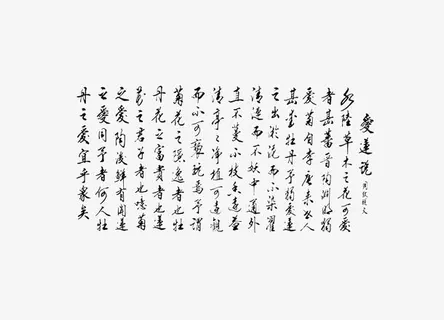 愛蓮說
周敦頤文
水陸草木之花可愛
者甚蕃晉陶淵明獨
愛菊自李唐來世人
甚愛牡丹予獨愛蓮
之出淤泥而不染濯
清漣而不妖中通外
直不蔓不枝香遠益
清亭亭淨植可遠觀
而不可褻玩焉予謂
菊花之隱逸者也牡
丹花之富貴者也蓮
花之君子者也噫菊
之愛陶後鮮有聞蓮
之愛同予者何人牡
丹之愛宜乎衆矣